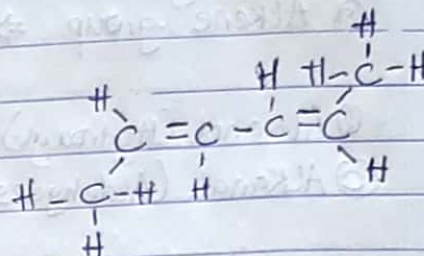 H
H H-C-H
H
C=C-C=C
H-C-H H H
H